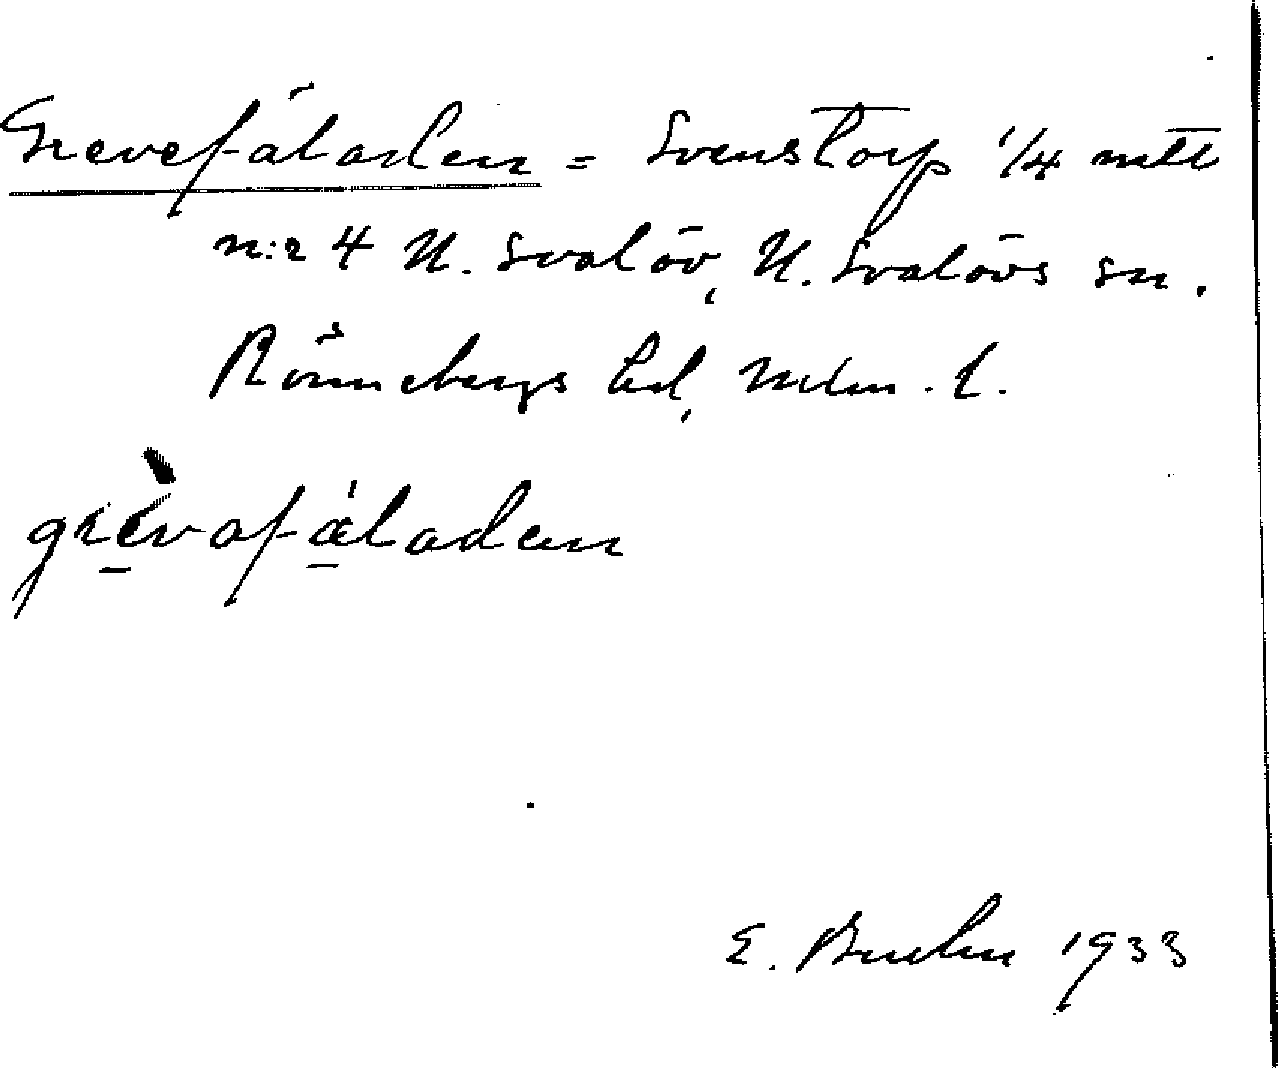 Grevefåladen = Svenstorp 1/4 mtl
n:r 4 N. Svalöv, N. Svalövs sn.
Rönnebergs hd, Mlm. l.
grèvafåladen
E. 1933